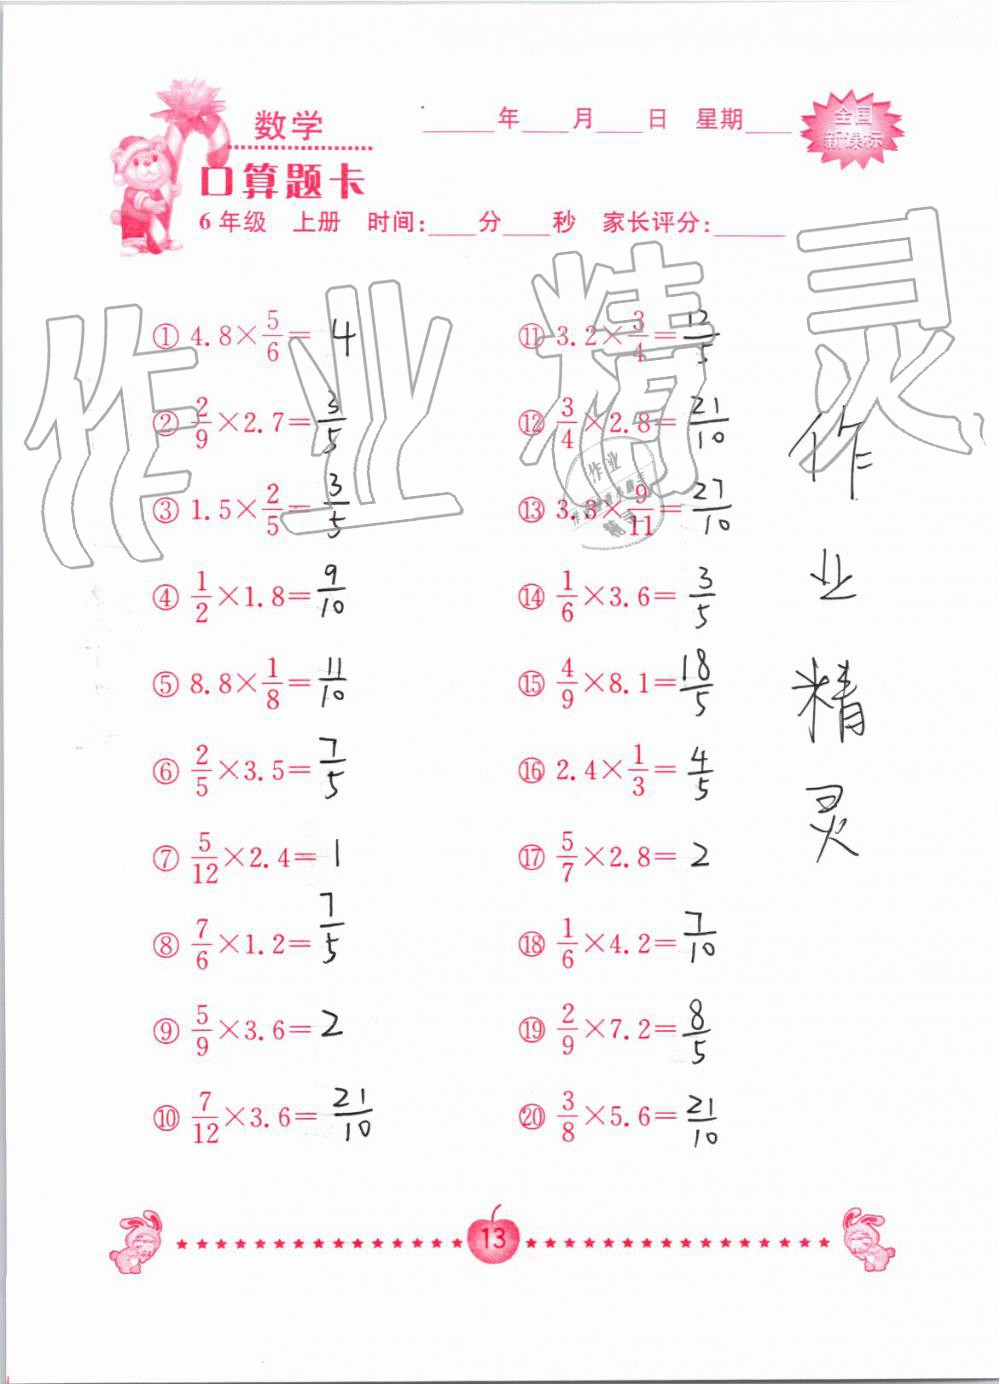 数学
____年____月____日 星期____
全国
新课标
口算题卡
6年级 上册 时间:____分____秒 家长评分:______
作业精灵
① 4.8×5/6= 4
② 2/9×2.7= 3/5
③ 1.5×2/5= 3/5
④ 1/2×1.8= 9/10
⑤ 8.8×1/8= 11/10
⑥ 2/5×3.5= 7/5
⑦ 5/12×2.4= 1
⑧ 7/6×1.2= 7/5
⑨ 5/9×3.6= 2
⑩ 7/12×3.6= 21/10
⑪ 3.2×3/4= 12/5
⑫ 3/4×2.8= 21/10
⑬ 3.3×9/11= 27/10
⑭ 1/6×3.6= 3/5
⑮ 4/9×8.1= 18/5
⑯ 2.4×1/3= 4/5
⑰ 5/7×2.8= 2
⑱ 1/6×4.2= 7/10
⑲ 2/9×7.2= 8/5
⑳ 3/8×5.6= 21/10
作业
精灵
作
业
精
灵
13